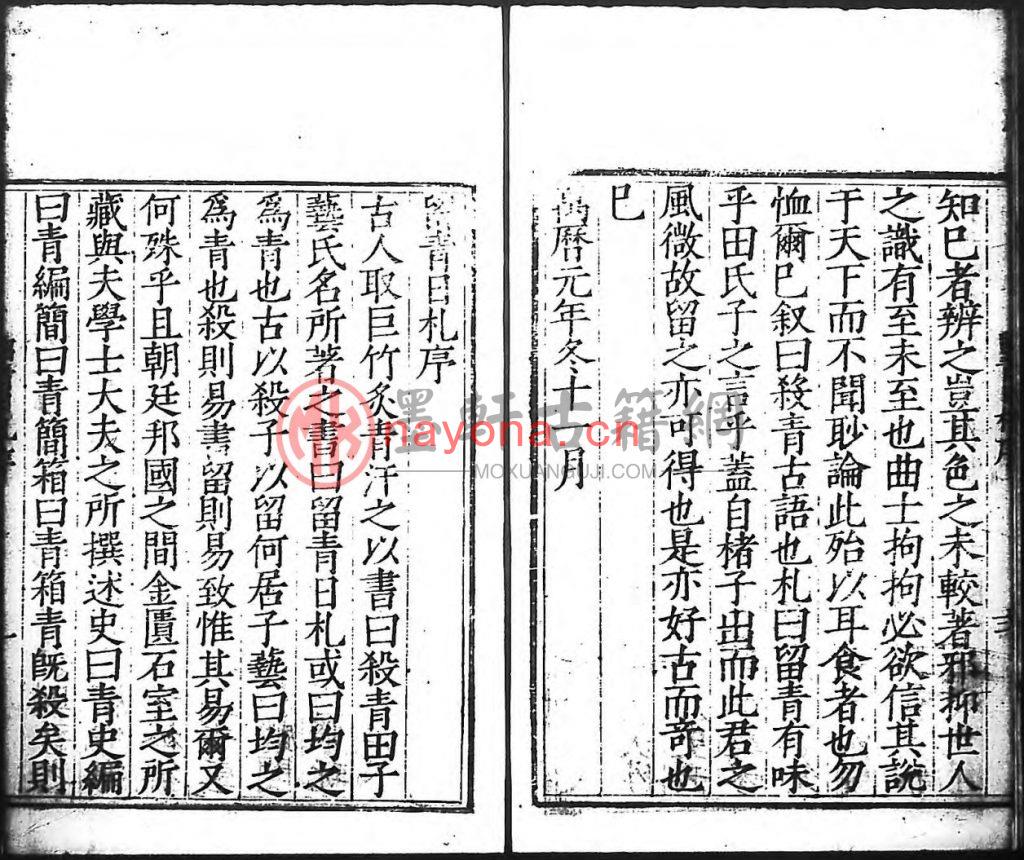 知巳者辨之豈其色之未較著邪抑世人
之識有至未至也曲士拘拘必欲信其說
于天下而不聞耿論此殆以耳食者也勿
恤爾巳叙曰殺青古語也札曰留青有味
乎田氏子之言乎蓋自楮子出而此君之
風微故留之亦可得也是亦好古而竒也
巳
萬曆元年冬十一月
留青日札序
古人取巨竹炙青汗之以書曰殺青田子
藝氏名所著之書曰留青日札或曰均之
爲青也古以殺子以留何居子藝曰均之
爲青也殺則易書留則易致惟其易爾又
何殊乎且朝廷邦國之間金匱石室之所
藏與夫學士大夫之所撰述史曰青史編
曰青編簡曰青簡箱曰青箱青旣殺矣則
墨軒古籍網
nayona.cn
MOXUANGUJI.COM